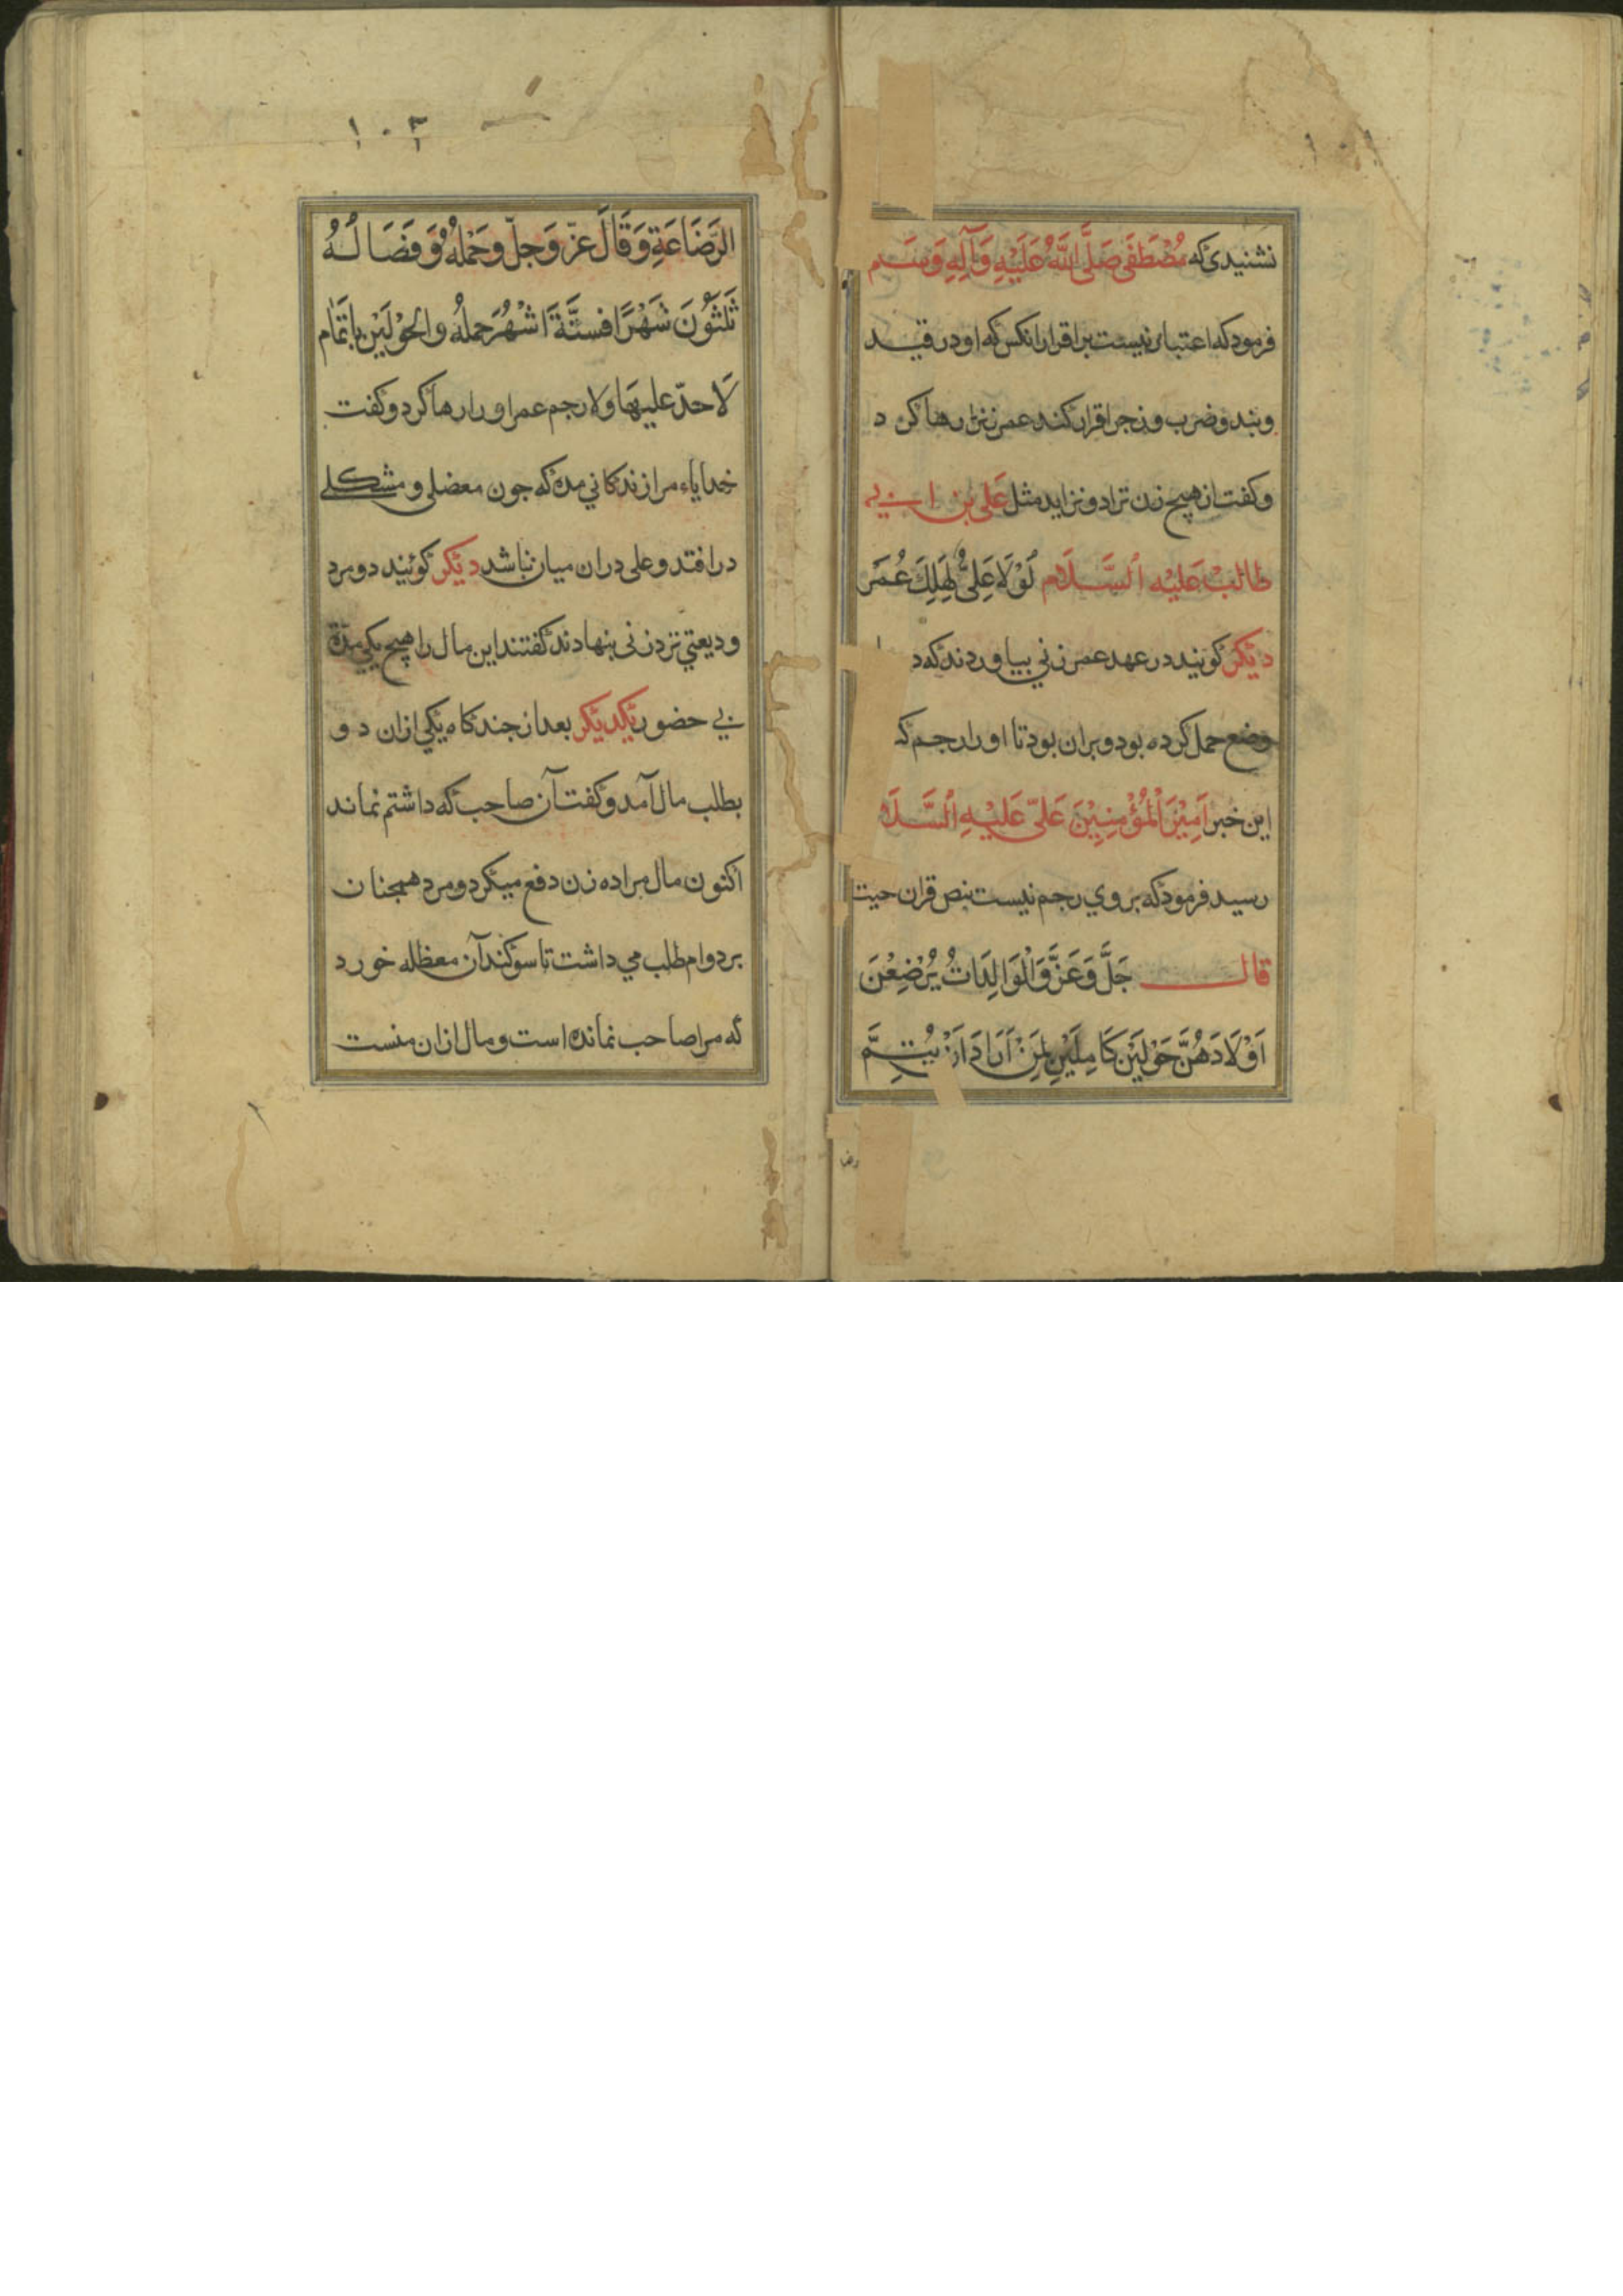 نشنیدی که مُصْطَفَی صَلَّی اللَّهُ عَلَیْهِ وَآلِهِ وَسَلَم
فرمود که اعتبار نیست بر اقرار انکس که او در قید
وبند وضرب وزجر اقرار کند عمر زنرا رها کرد
وکفت از هیچ زن نزاد ونزاید مثل عَلی بن ابی
طالبْ عَلیْه السَّلَام لَوْلَا عَلِیٌّ لَهَلِكَ عُمَر
دیکر کویند در عهد عمر زنی بیاوردند که د
وضع حمل کرده بود وبران بود تا اورا رجم ک
این خبر اَمِیْرَ الْمُؤْمِنِیْنَ عَلیّ عَلَیْهِ السَّلَا
رسید فرمود که بر وی رجم نیست بنص قران حیت
قال جَلَّ وَعَزَّ وَالْوَالِدَاتُ یُرْضِعْنَ
اَوْلَادَهُنَّ حَوْلَیْنِ کَامِلَیْنِ لِمَنْ اَرَادَ اَنْ یُتِمَّ
رضا
۱۰۲
الرَّضَاعَةِ وَقَالَ عَزّ وَجلّ وحَمْلُهُ وَفَصَالُهُ
ثَلٰثُوْنَ شَهْرًا فستَّةَ اَشْهُرَ حملهُ والحَوْلَیْن باتمَام
لَا حدّ علیهَا ولا رجم عمر اورا رها کرد وکفت
خدایاء مرا زندکانی مده که جون معضلی ومشکلے
در افتد وعلی دران میان نباشد دیکر کویند دو مرد
ودیعتی نزد زنی بنهادند کفتند این مال را هیچ یکی مده
بی حضور یکدیکر بعد از جندکاه یکی ازان دو
بطلب مال آمد وکفت آن صاحب که داشتم نماند
اکنون مال مرا ده زن دفع میکرد ومرد همجنان
بر دوام طلب می داشت تا سوکند آن معظله خورد
که مرا صاحب نمانده است ومال ازان منست